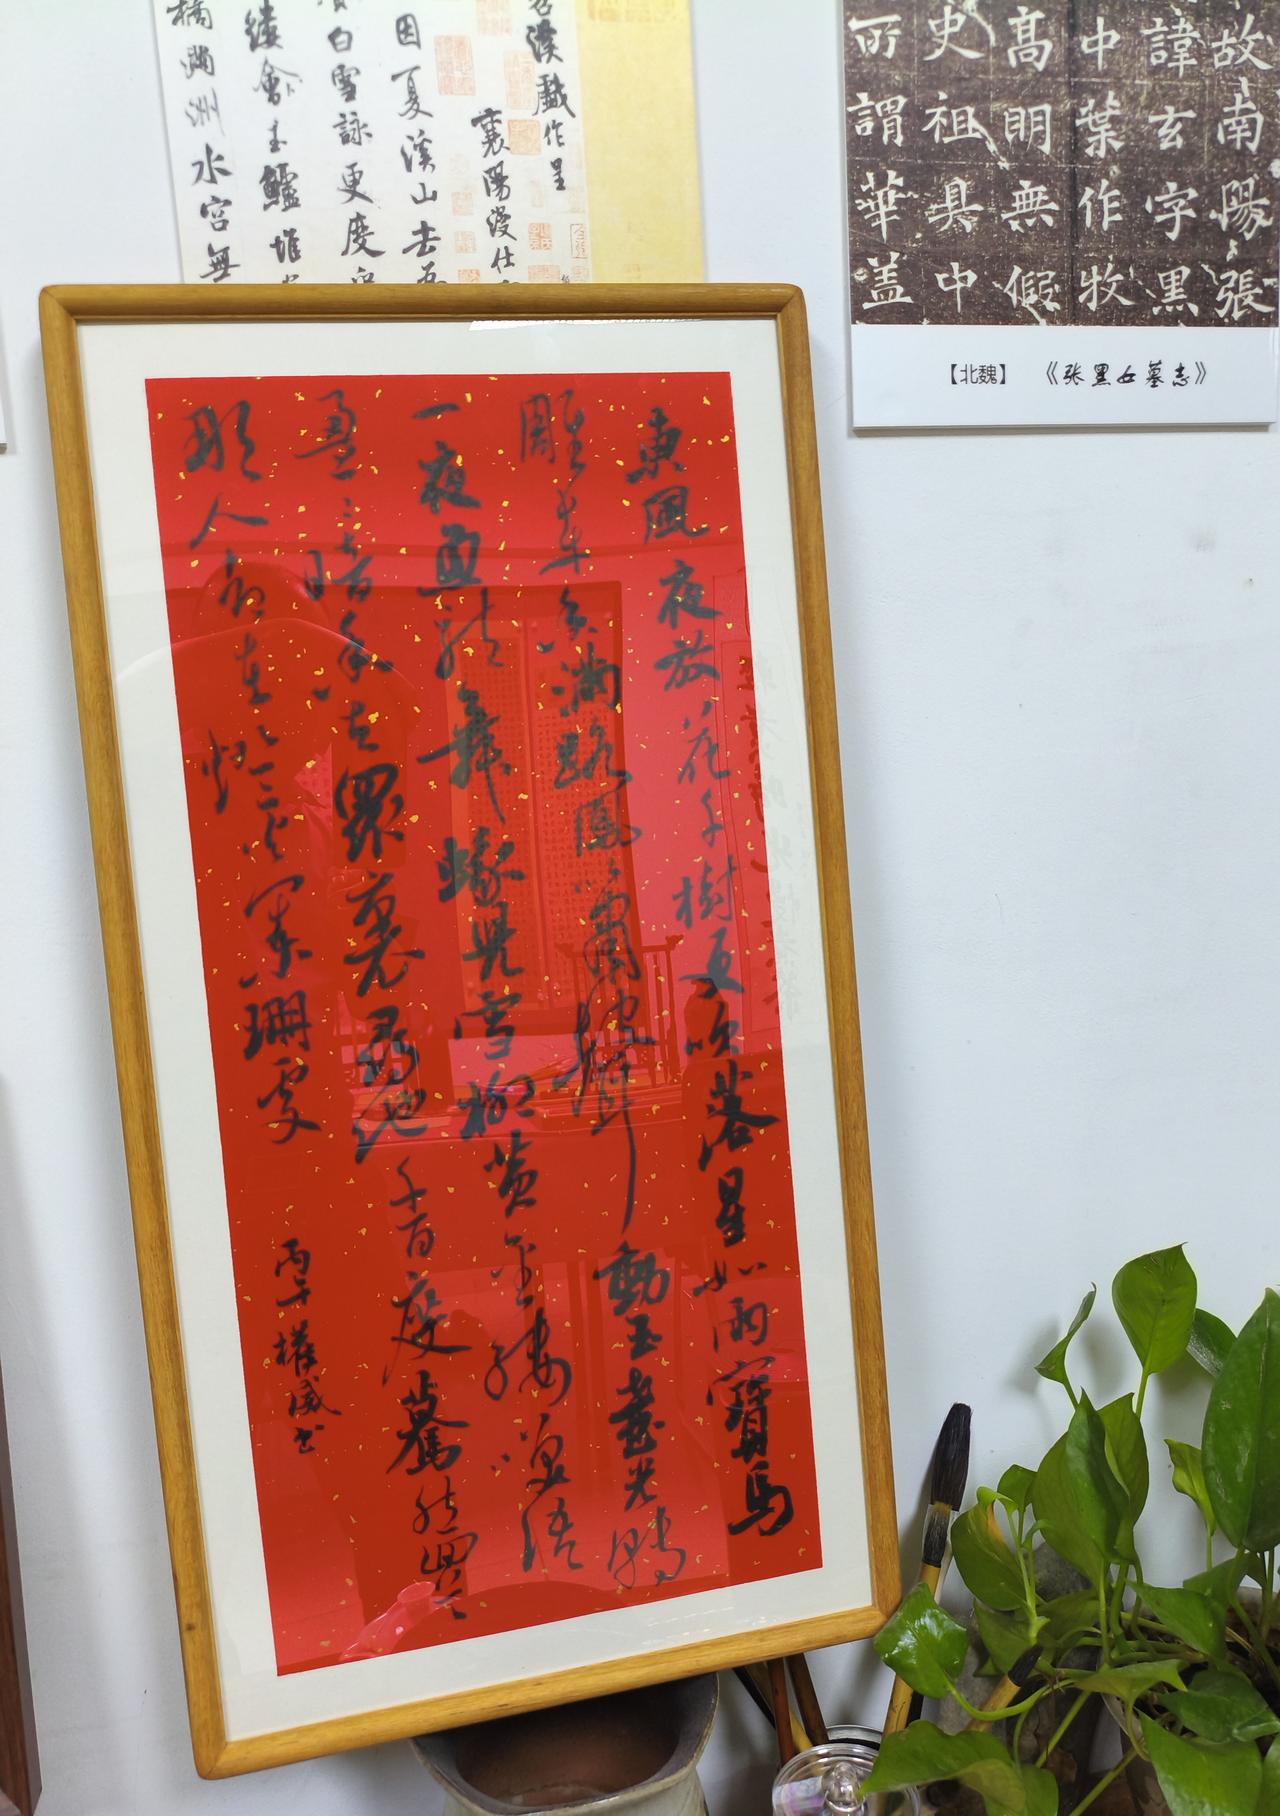 溪戲作呈
襄陽漫仕
因夏溪山去
白雪詠更度
縷會玉鱸堆
滿洲水宮無
故南陽張
諱玄字黑
中葉作牧
高明無假
史祖具中
所謂華盖
【北魏】 《张黑女墓志》
東風夜放花千樹更吹落星如雨寶馬
雕車香滿路鳳簫聲動玉壺光轉
一夜魚龍舞蛾兒雪柳黃金縷笑語
盈〻暗香去眾裏尋他千百度驀然回首
那人卻在燈火闌珊處
丙午權威书